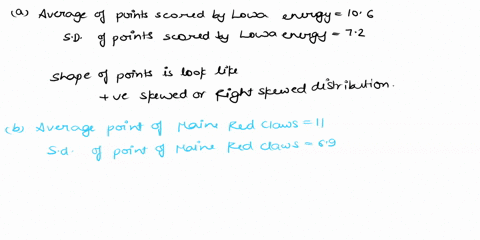 (a) Average of points scored by Lowa energy = 10.6
S.D. of points scored by Lowa energy = 7.2
Shape of points is look like
+ve skewed or Right skewed distribution.
(b) Average point of Maine Red Claws = 11
S.d. of point of Maine Red Claws = 6.9